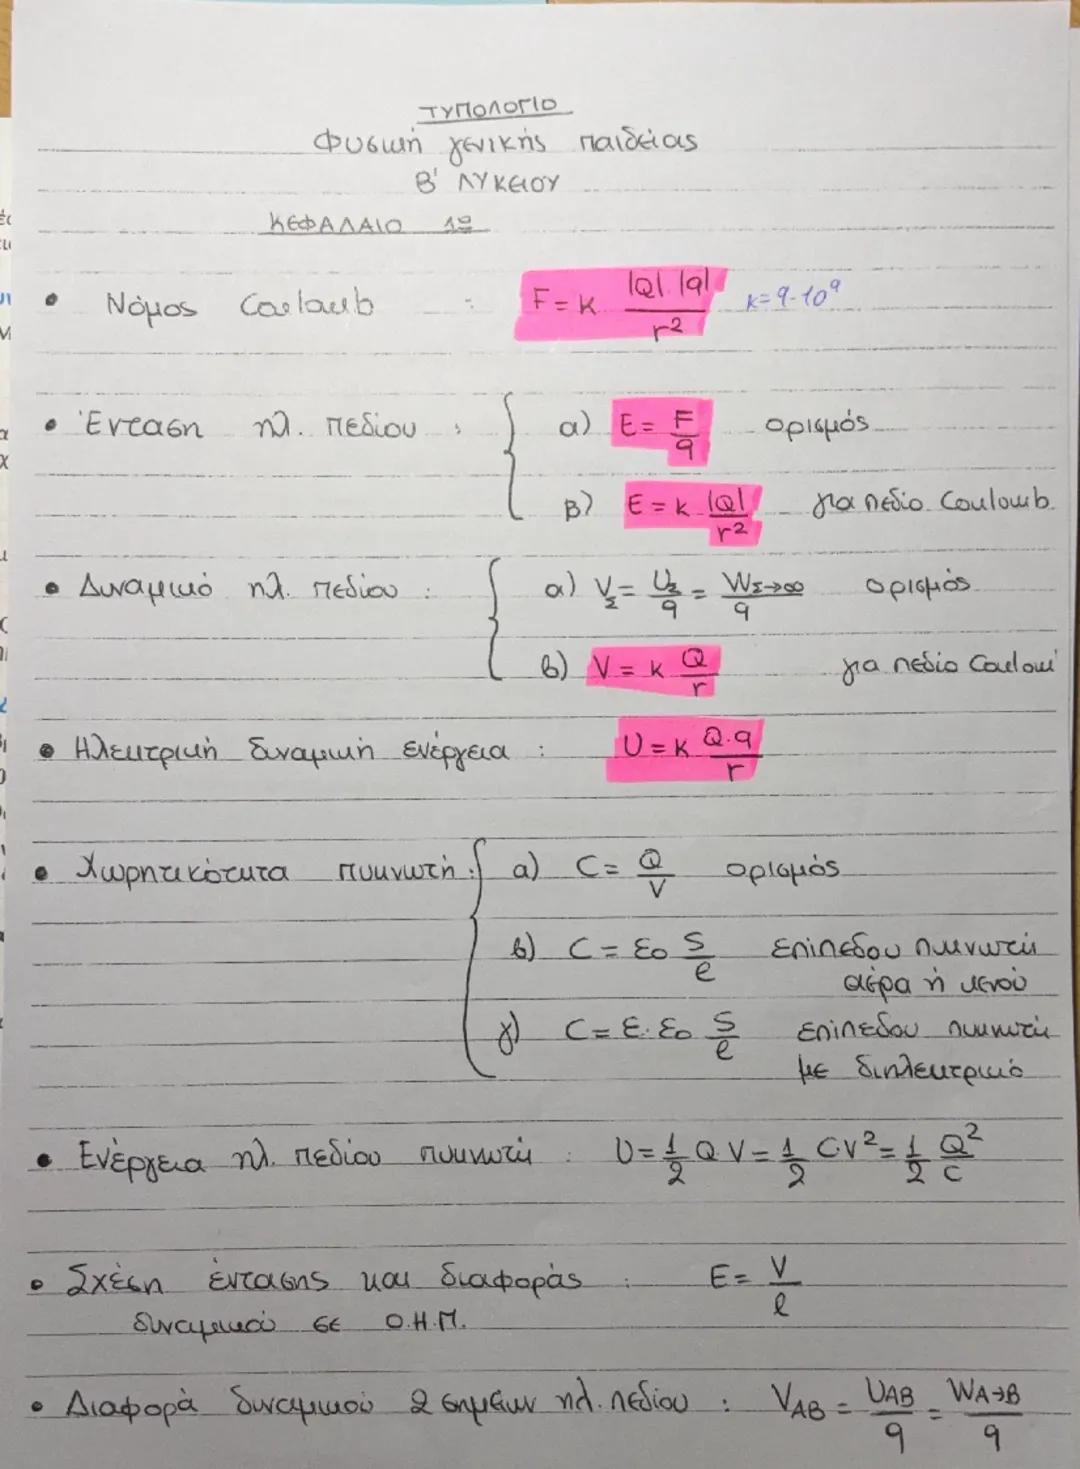 ΤΥΠΟΛΟΓΙΟ
Φυσική γενικής παιδείας
Β' ΛΥΚΕΙΟΥ
ΚΕΦΑΛΑΙΟ 1º
• Νόμος Coulomb : F = k |Q|.|q| / r² k=9·10⁹
• Ένταση ηλ. πεδίου : α) E = F/q ορισμός
β) E = k |Q|/r² για πεδίο Coulomb
• Δυναμικό ηλ. πεδίου : α) V_Σ = U_Σ/q = W_Σ→∞/q ορισμός
β) V = k Q/r για πεδίο Coulom
• Ηλεκτρική δυναμική ενέργεια : U = k Q.q/r
• Χωρητικότητα πυκνωτή : α) C = Q/V ορισμός
β) C = ε₀ S/l επίπεδου πυκνωτή
αέρα ή κενού
γ) C = ε·ε₀ S/l επίπεδου πυκνωτή
με διηλεκτρικό
• Ενέργεια ηλ. πεδίου πυκνωτή : U = 1/2 Q V = 1/2 CV² = 1/2 Q²/C
• Σχέση έντασης και διαφοράς : E = V/l
δυναμικού σε Ο.Η.Π.
• Διαφορά δυναμικού 2 σημείων ηλ. πεδίου : V_AB = U_AB/q = W_A→B/q